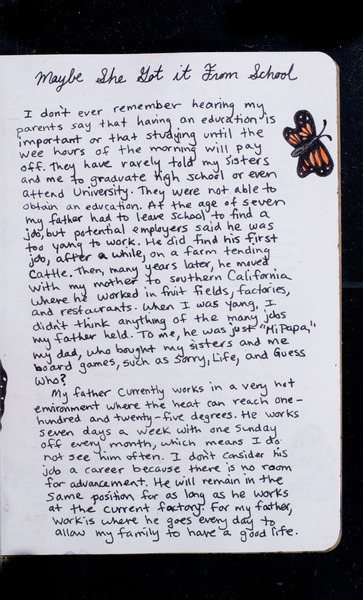 Maybe She Got it From School
I don't ever remember hearing my
parents say that having an education is
important or that studying until the
wee hours of the morning will pay
off. They have rarely told my sisters
and me to graduate high school or even
attend University. They were not able to
obtain an education. At the age of seven
my father had to leave school to find a
job, but potential employers said he was
too yang to work. He did find his first
job, after a while, on a farm tending
Cattle. Then, many years later, he moved
with my mother to southern California
where he worked in fruit fields, factories,
and restaurants. When I was yang, I
didn't think anything of the many jobs
my father held. To me, he was just "Mi Papa,"
my dad, who bought my sisters and me
board games, such as Sorry, Life, and Guess
Who?
My father currently works in a very hot
environment where the heat can reach one-
hundred and twenty-five degrees. He works
seven days a week with one Sunday
off every month, which means I do
not see him often. I don't consider his
job a career because there is no room
for advancement. He will remain in the
same position for as long as he works
at the current factory. For my father,
work is where he goes every day to
allow my family to have a good life.